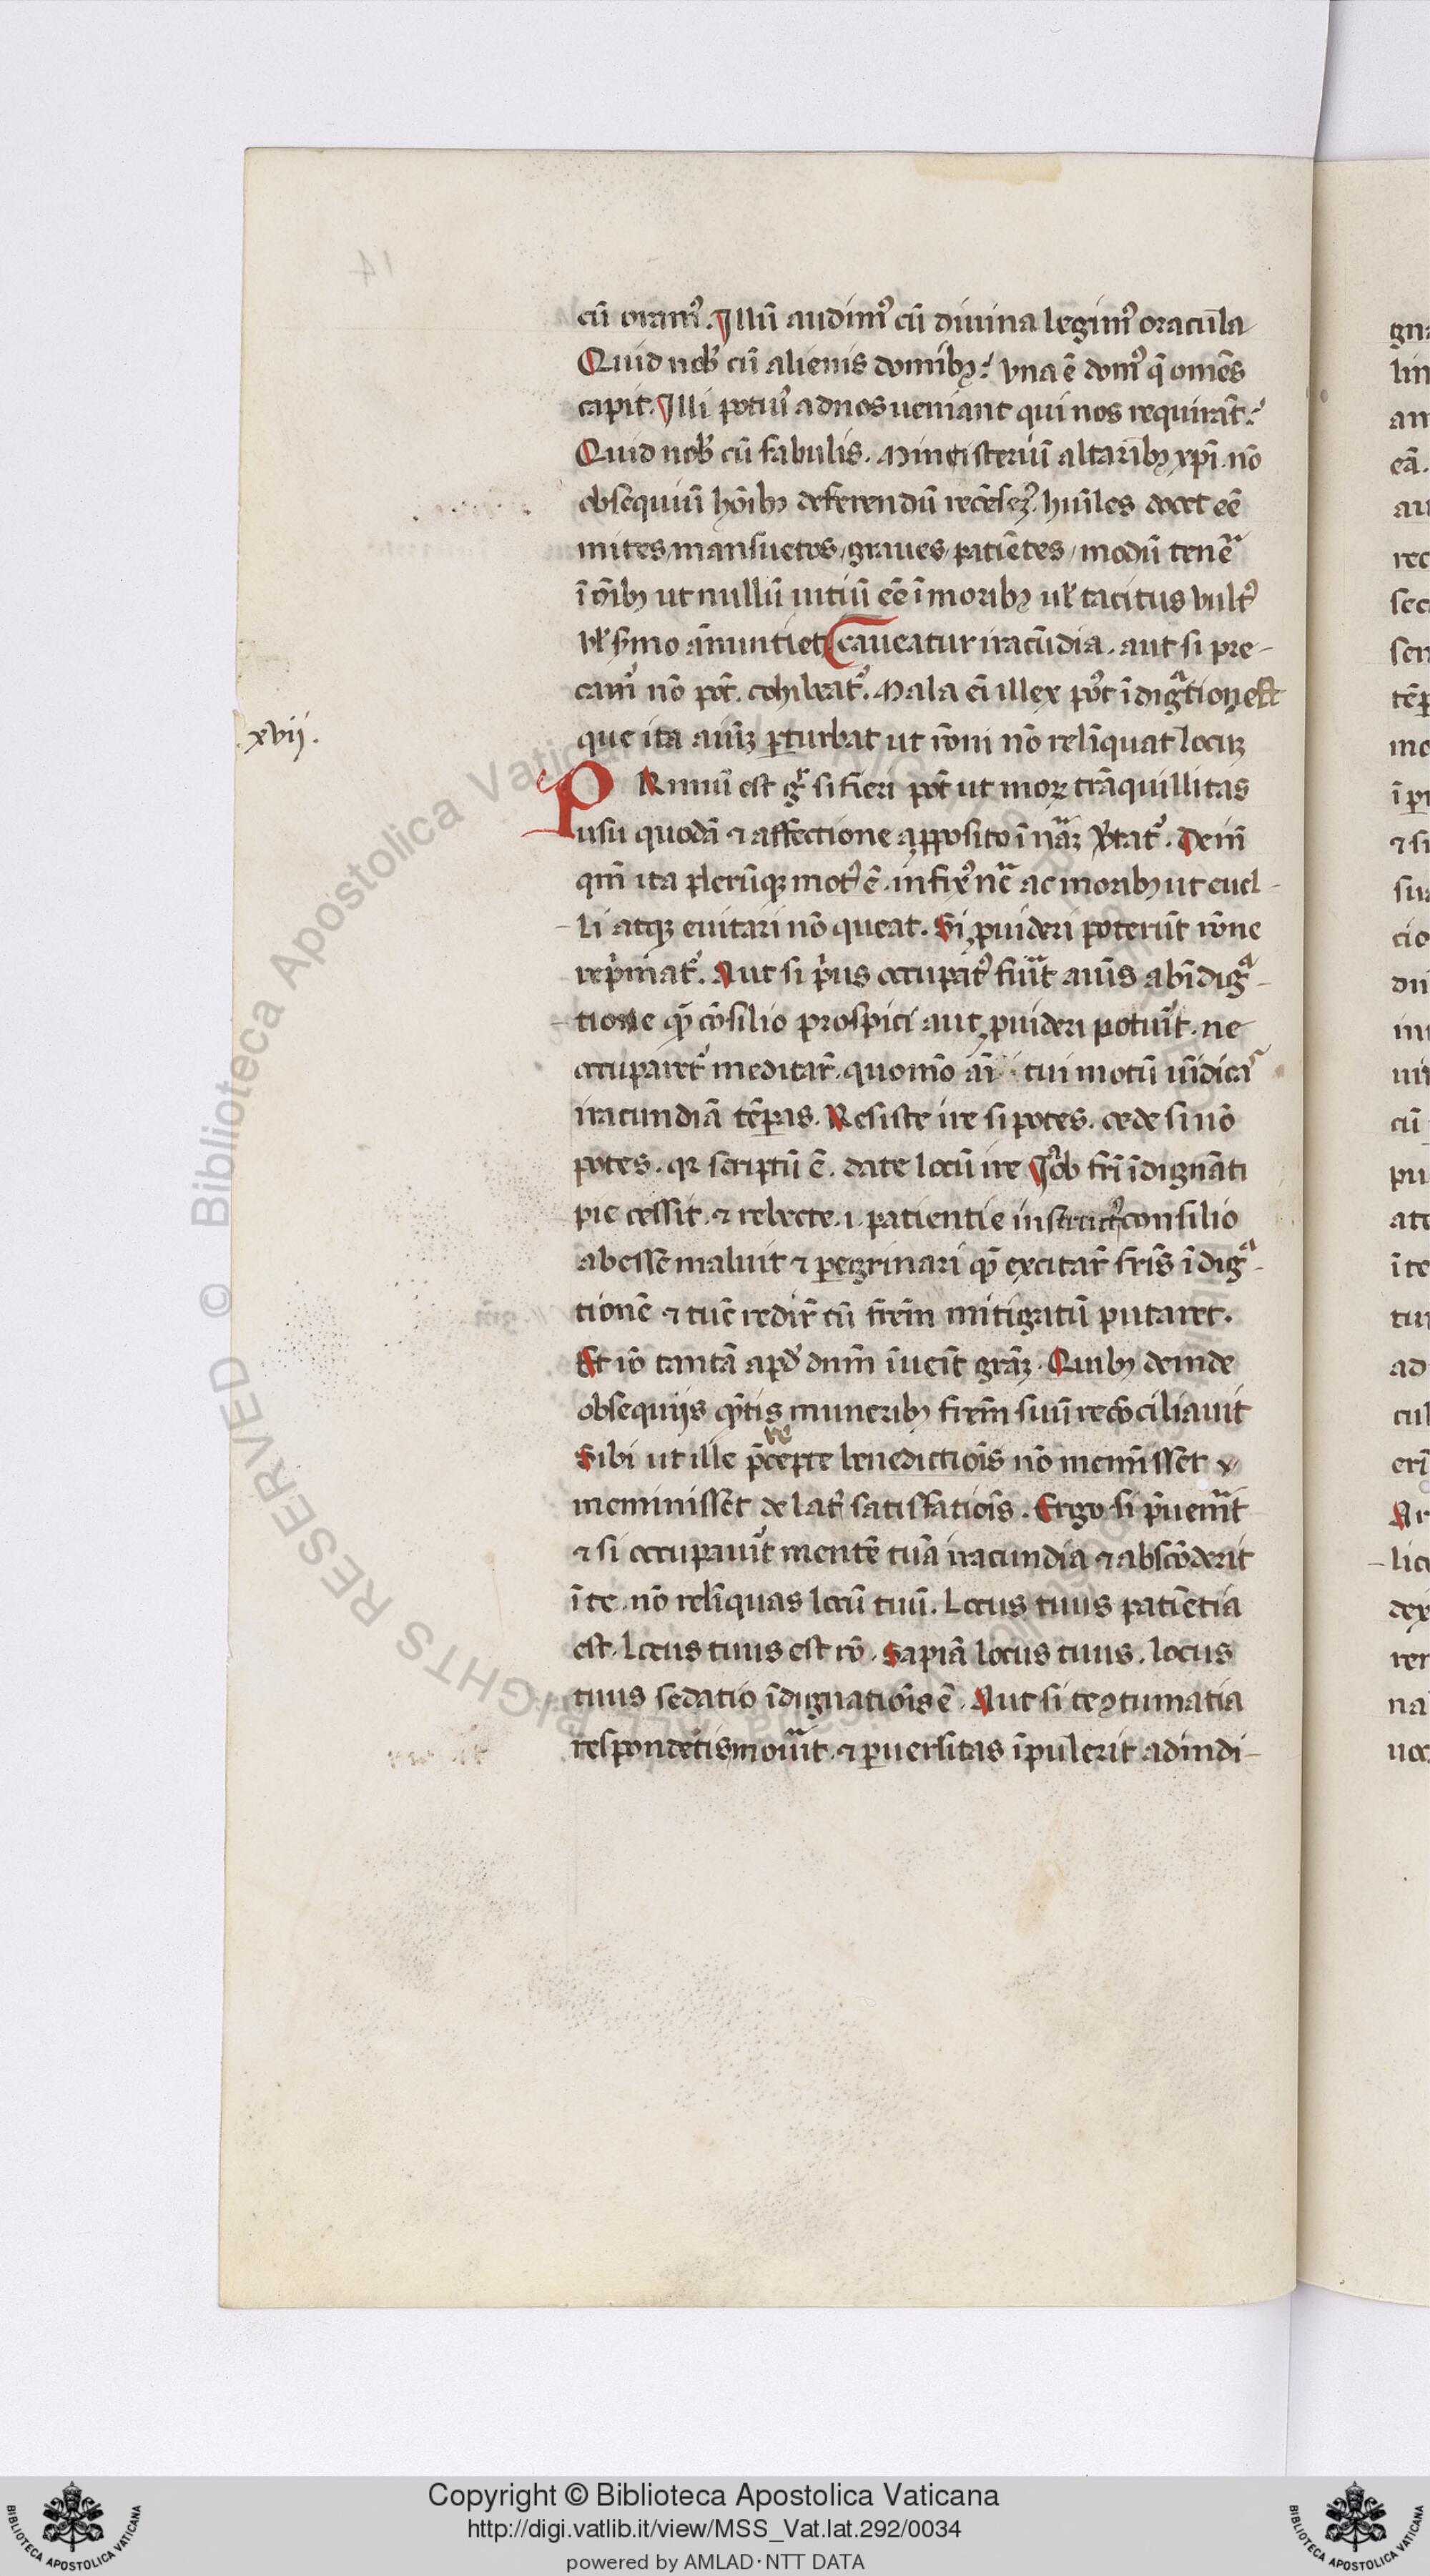 cū oramꝰ. Illū audimꝰ cū diuina legimꝰ oracula
Quid nob̄ cū alienis domibꝫ? vna ē domꝰ q̄ omēs
capit. Illi potiuˀ ad nos ueniant qui nos requirāt?
Quid nob̄ cū fabulis. Ministeriū altaribꝫ xp̄i nō
obsequiū hōibꝫ deferendū humiles docet eē
mites, mansuetos, graues, patiētes, modū tenēa
ī oībꝫ ut nullū uitiū eē ī moribꝫ uł tacitus vultꝰ
uł s̄mo ānuntiet Caueatur iracūdia. aut si pre-
cauˀi nō pōt. cohibeatˀ. Mala eī illex pōt īdigᵃtionest
que ita aīuꝫ ꝑturbat ut rōni nō relīquat locuꝫ
xvij.
PRimū est gˀ si fieri pōt ut moꝝ trāquillitas
usu quodā ⁊ affectione ꝓposito ī nāꝫ v̄tatˀ. Dein̄
qm̄ ita pleruͥqꝫ motꝰ ē infixꝰ nē ac moribꝫ ut euel-
li atqꝫ euitari nō queat. Si ꝓuideri poterīt rōne
rep̄matˀ. Aut si pͥus occupatꝰ fuīt aīus ab īdigᵃ-
tione qᷓ cōsilio prospici aut ꝓuideri potuīt. ne
occuparetˀ meditar̄. quomō aī tui motū uīdica
iracundiā tēperas. Resiste ire si potes. cede si nō
potes. qꝛ scriptū ē. date locū ire Iacob fr̄i īdignāti
pie cessit. ⁊ rebecte .i. patientie instructꝰ consilio
abesse maluit ⁊ ꝑegrinari qᷓ excitar̄ fr̄is īdigᵃ-
tionē ⁊ tūc redir̄ cū fr̄em mitigatū putaret.
Et iō tantā apd̄ dn̄m īuenīt grāꝫ. Quibꝫ deinde
obsequijs qᷓtis muneribꝫ fr̄em suū recōciliauit
Sibi ut ille p̄cepte benedictiōis nō meminisset
meminisset delatˀ satisfatiōis. Ergo si p̄uenīt
⁊ si occupauīt mentē tuā iracundia ⁊ abscōderit
ī te. nō relīquas locū tuū. Locus tuus patiētia
est. Locus tuus est rō. Sapiā locus tuus. locus
tuus sedatio īdignatiōis ē. Aut si te ꝯtumatia
respondētis mouīt. ⁊ ꝑuersitas īpulerit ad indi-
Copyright © Biblioteca Apostolica Vaticana
http://digi.vatlib.it/view/MSS_Vat.lat.292/0034
powered by AMLAD·NTT DATA